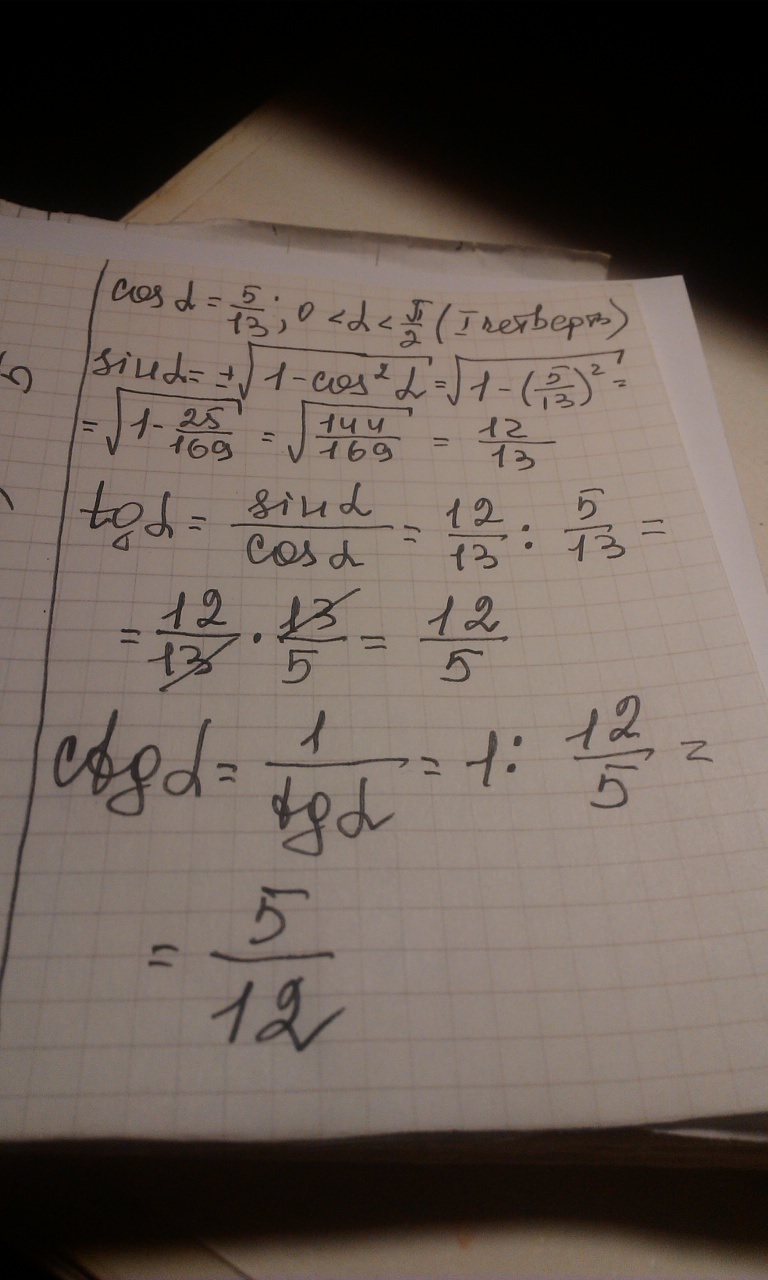 cos α = 5/13; 0 < α < π/2 (I четверть)
sin α = ±√(1 - cos² α) = √(1 - (5/13)²) =
= √(1 - 25/169) = √(144/169) = 12/13
tg α = sin α / cos α = 12/13 : 5/13 =
= 12/13 · 13/5 = 12/5
ctg α = 1 / tg α = 1 : 12/5 =
= 5/12